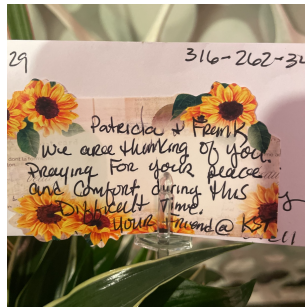 29 316-262-32
Patricia & Frank
We are thinking of you.
Praying for your peace
and comfort during this
Difficult Time.
Your Friend@ KS